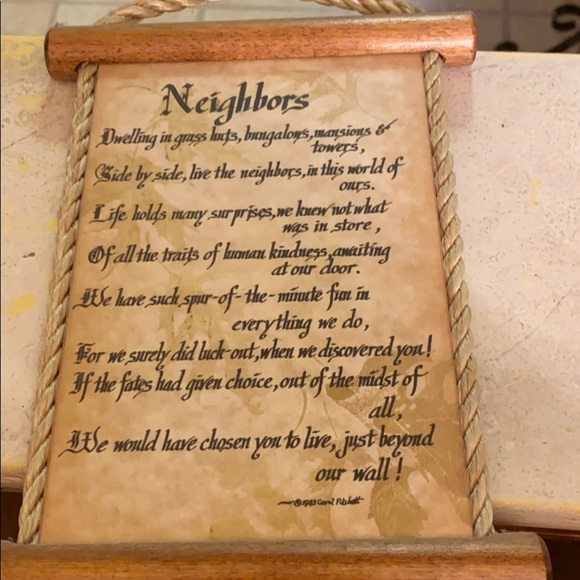 Neighbors
Dwelling in grass huts, bungalows, mansions &
towers,
Side by side, live the neighbors, in this world of
ours.
Life holds many surprises, we knew not what
was in store,
Of all the traits of human kindness, awaiting
at our door.
We have such spur-of-the-minute fun in
everything we do,
For we surely did luck-out, when we discovered you!
If the fates had given choice, out of the midst of
all,
We would have chosen you to live, just beyond
our wall!
© 1983 Carol